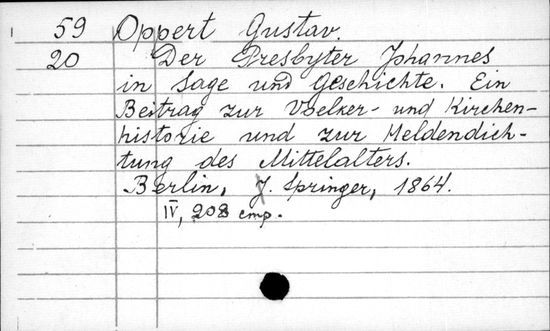 59 Oppert Gustav.
20 Der Presbyter Johannes
in Sage und Geschichte. Ein
Beitrag zur Voelker- und Kirchen-
historie und zur Heldendich-
tung des Mittelalters.
Berlin, J. Springer, 1864.
IV, 208 стр.